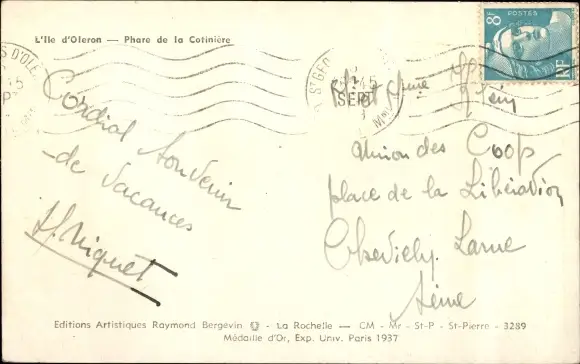 L'Ile d'Oleron — Phare de la Cotinière
8F
POSTES
RF
S D'OLE
ST GEO
SEPT
Cordial souvenir
de vacances
H. Niquet
Mr et Mme
Union des Coop
place de la Libération
Chevilly Larue
Seine
Editions Artistiques Raymond Bergevin - La Rochelle — CM - Mr - St-P - St-Pierre - 3289
Médaille d'Or, Exp. Univ. Paris 1937